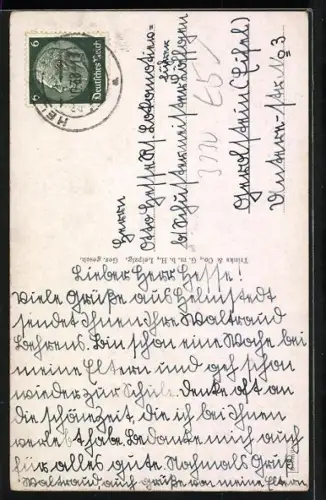 6
Deutsches Reich
HEL
Herrn
Otto Hesse Rf. Lokomotiv=
führer
b/ Schustermeister
Gerolstein (Eifel)
Unterer=str. No 3
Trinks & Co., G. m. b. H., Leipzig. Ges. gesch.
Lieber Herr Hesse!
Viele Grüße aus Helmstedt
sendet Ihnen Ihre Waltraud
Behrens. Bin schon eine Woche bei
meine Eltern und geh schon
wieder zur Schule. Denke oft an
die schöne Zeit, die ich bei Ihnen
verlebt habe. Bedanke mich auch
für alles gute. Nochmals Grüße
Waltraud auch grüße von meine Eltern